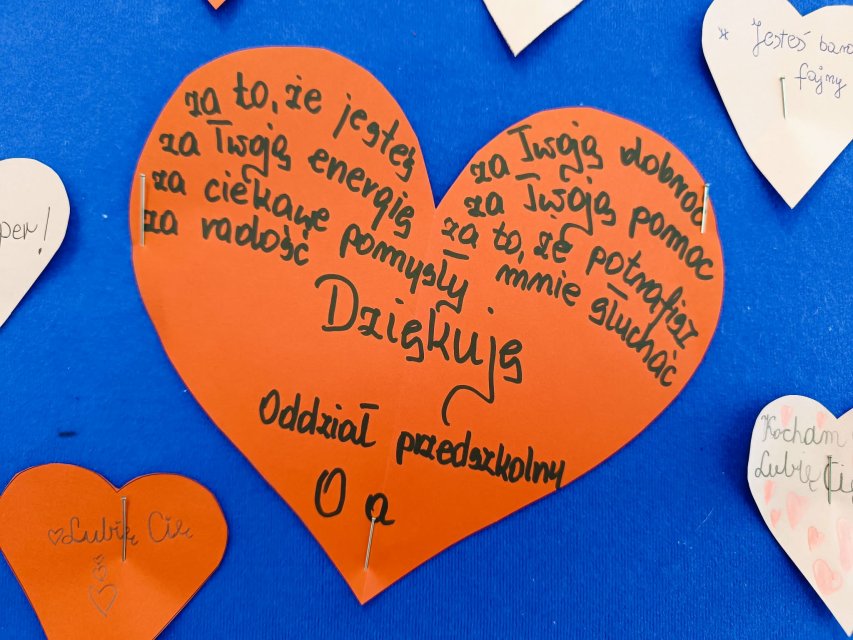 za to, że jesteś
za Twoją energię
za ciekawe pomysły
za radość
za Twoją dobroć
za Twoją pomoc
za to, że potrafisz
mnie słuchać
Dziękuję
Oddział przedszkolny
0 a
* Jesteś
fajny
per!
♡Lubię Cię
Kocham
Lubię Cię